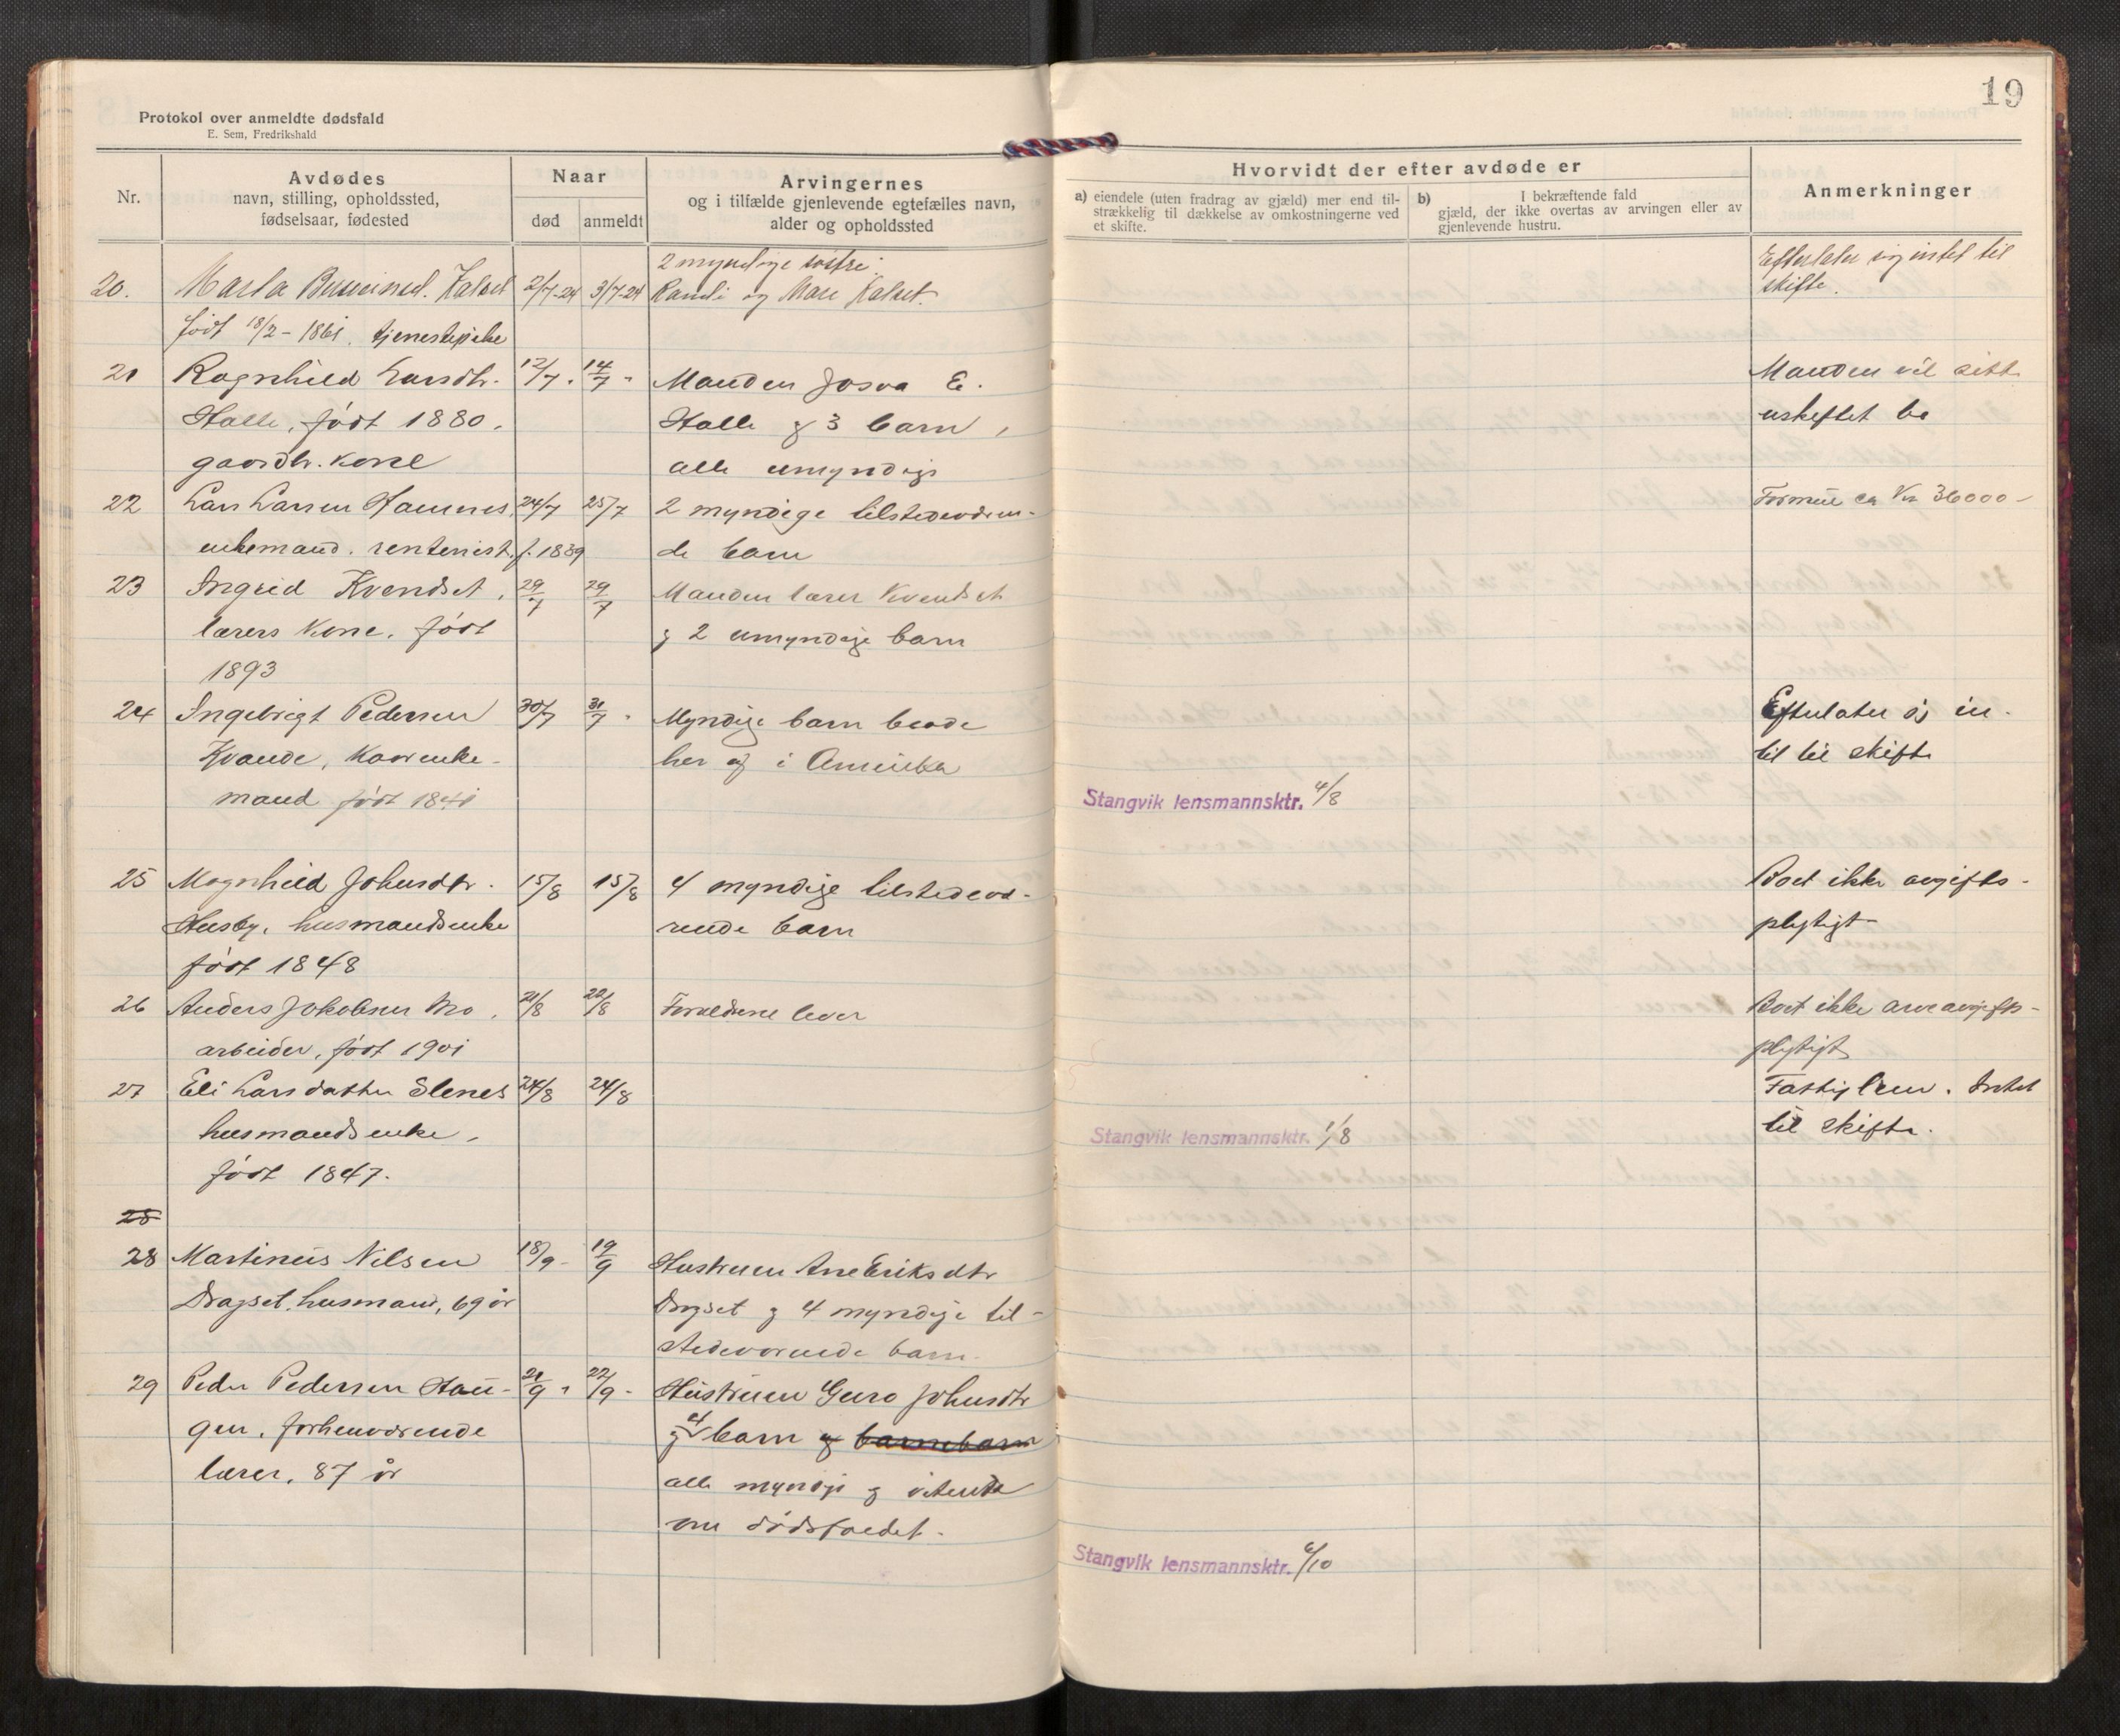 19
Protokol over anmeldte dødsfald
E. Sem, Fredrikshald
Nr.
Avdødes
navn, stilling, opholdssted,
fødselsaar, fødested
Naar
død
anmeldt
Arvingernes
og i tilfælde gjenlevende egtefælles navn,
alder og opholdssted
Hvorvidt der efter avdøde er
a) eiendele (uten fradrag av gjæld) mer end til-
strækkelig til dækkelse av omkostningerne ved
et skifte.
b) I bekræftende fald
gjæld, der ikke overtas av arvingen eller av
gjenlevende hustru.
Anmerkninger
20. Marta Kalset 2/7-24 3/7-24
født 18/2-1861, tjenestepike
2 myndige søstre:
Randi og Mare Kalset.
Efterlater sig intet til
skifte.
21 Ragnhild Larsdtr. 12/7 " 14/7 " Manden Josva E.
Halle, født 1880, Halle og 3 barn,
gaardbr. kone alle umyndige
Manden vil sitte
uskiftet bo
22 Lars Larsen Hamnes, 24/7 25/7 2 myndige tilstedeværen-
enkemand, rentenist, f. 1839 de barn
Formue ca Kr 36000-
23 Ingrid Kvendset, 29/7 29/7 Manden lærer Kvendset
lærers kone, født og 2 umyndige barn
1893
24 Ingebrigt Pedersen 30/7 31/7 " Myndige barn baade
Kvande, kaarenke- her og i Amerika
mand født 1841
Efterlater sig in-
tet til skifte
Stangvik lensmannsktr. 4/8
25 Magnhild Johnsdtr. 15/8 15/8 4 myndige tilstedevæ-
Husby, husmandsenke rende barn
født 1848
Boet ikke avgifts-
plygtigt
26 Anders Jakobsen Mo, 21/8 22/8 Forældrene lever
arbeider, født 1901
Boet ikke arveavgifts-
plygtigt
27 Eli Larsdatter Slenes 24/8 24/8
husmandsenke,
født 1847.
Fattiglem. Intet
til skifte.
Stangvik lensmannsktr. 1/8
28
28 Martinus Nilsen 18/9 - 19/9 Hustruen Ane Eriksdtr
Dragset, husmand, 69 år Dragset og 4 myndige til-
stedeværende barn.
29 Peder Pedersen Hau- 21/9 " 22/9 - Hustruen Guro Johnsdtr
gen, forhenværende og 4 barn og barnebarn
lærer, 87 år alle myndige og vitende
om dødsfaldet.
Stangvik lensmannsktr. 6/10